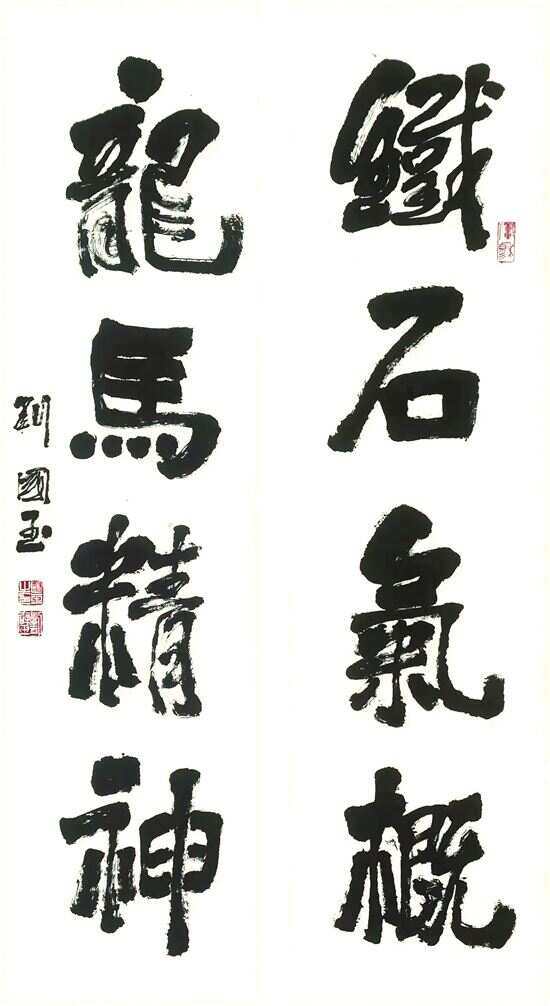 鐵石氣概
龍馬精神
劉國玉